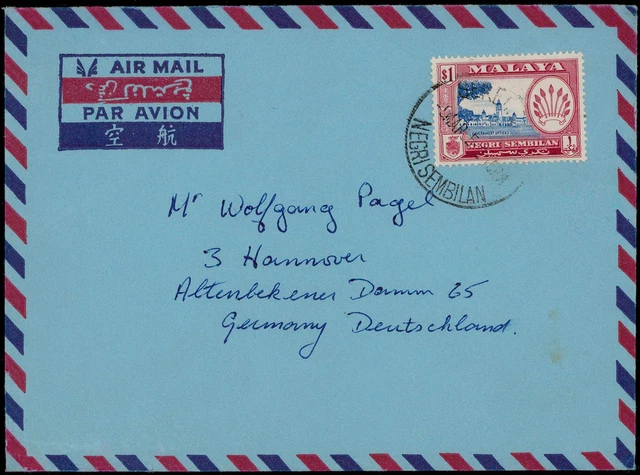 AIR MAIL
PAR AVION
空 航
$1 MALAYA
GOVERNMENT OFFICES
NEGRI SEMBILAN
نڬري سمبيلن
NEGRI SEMBILAN
Mr Wolfgang Pagel
3 Hannover
Altenbekener Damm 65
Germany Deutschland.